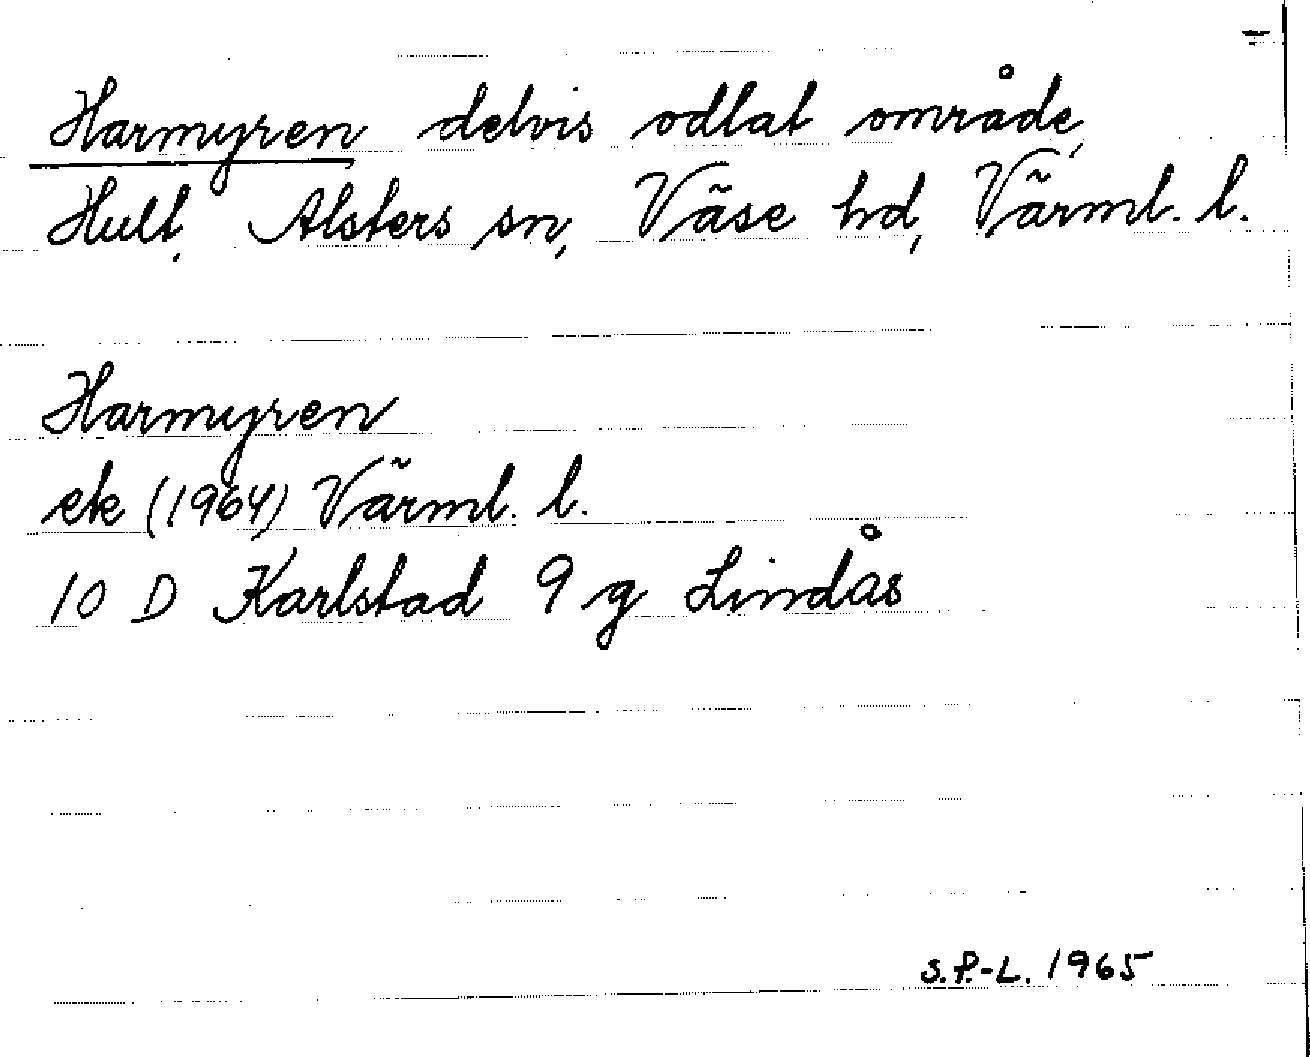 Harmyren delvis odlat område,
Hult, Alsters sn, Väse hd, Värml. l.
Harmyren
ek (1964) Värml. l.
10 D Karlstad 9 g Lindås
S.P.-L. 1965